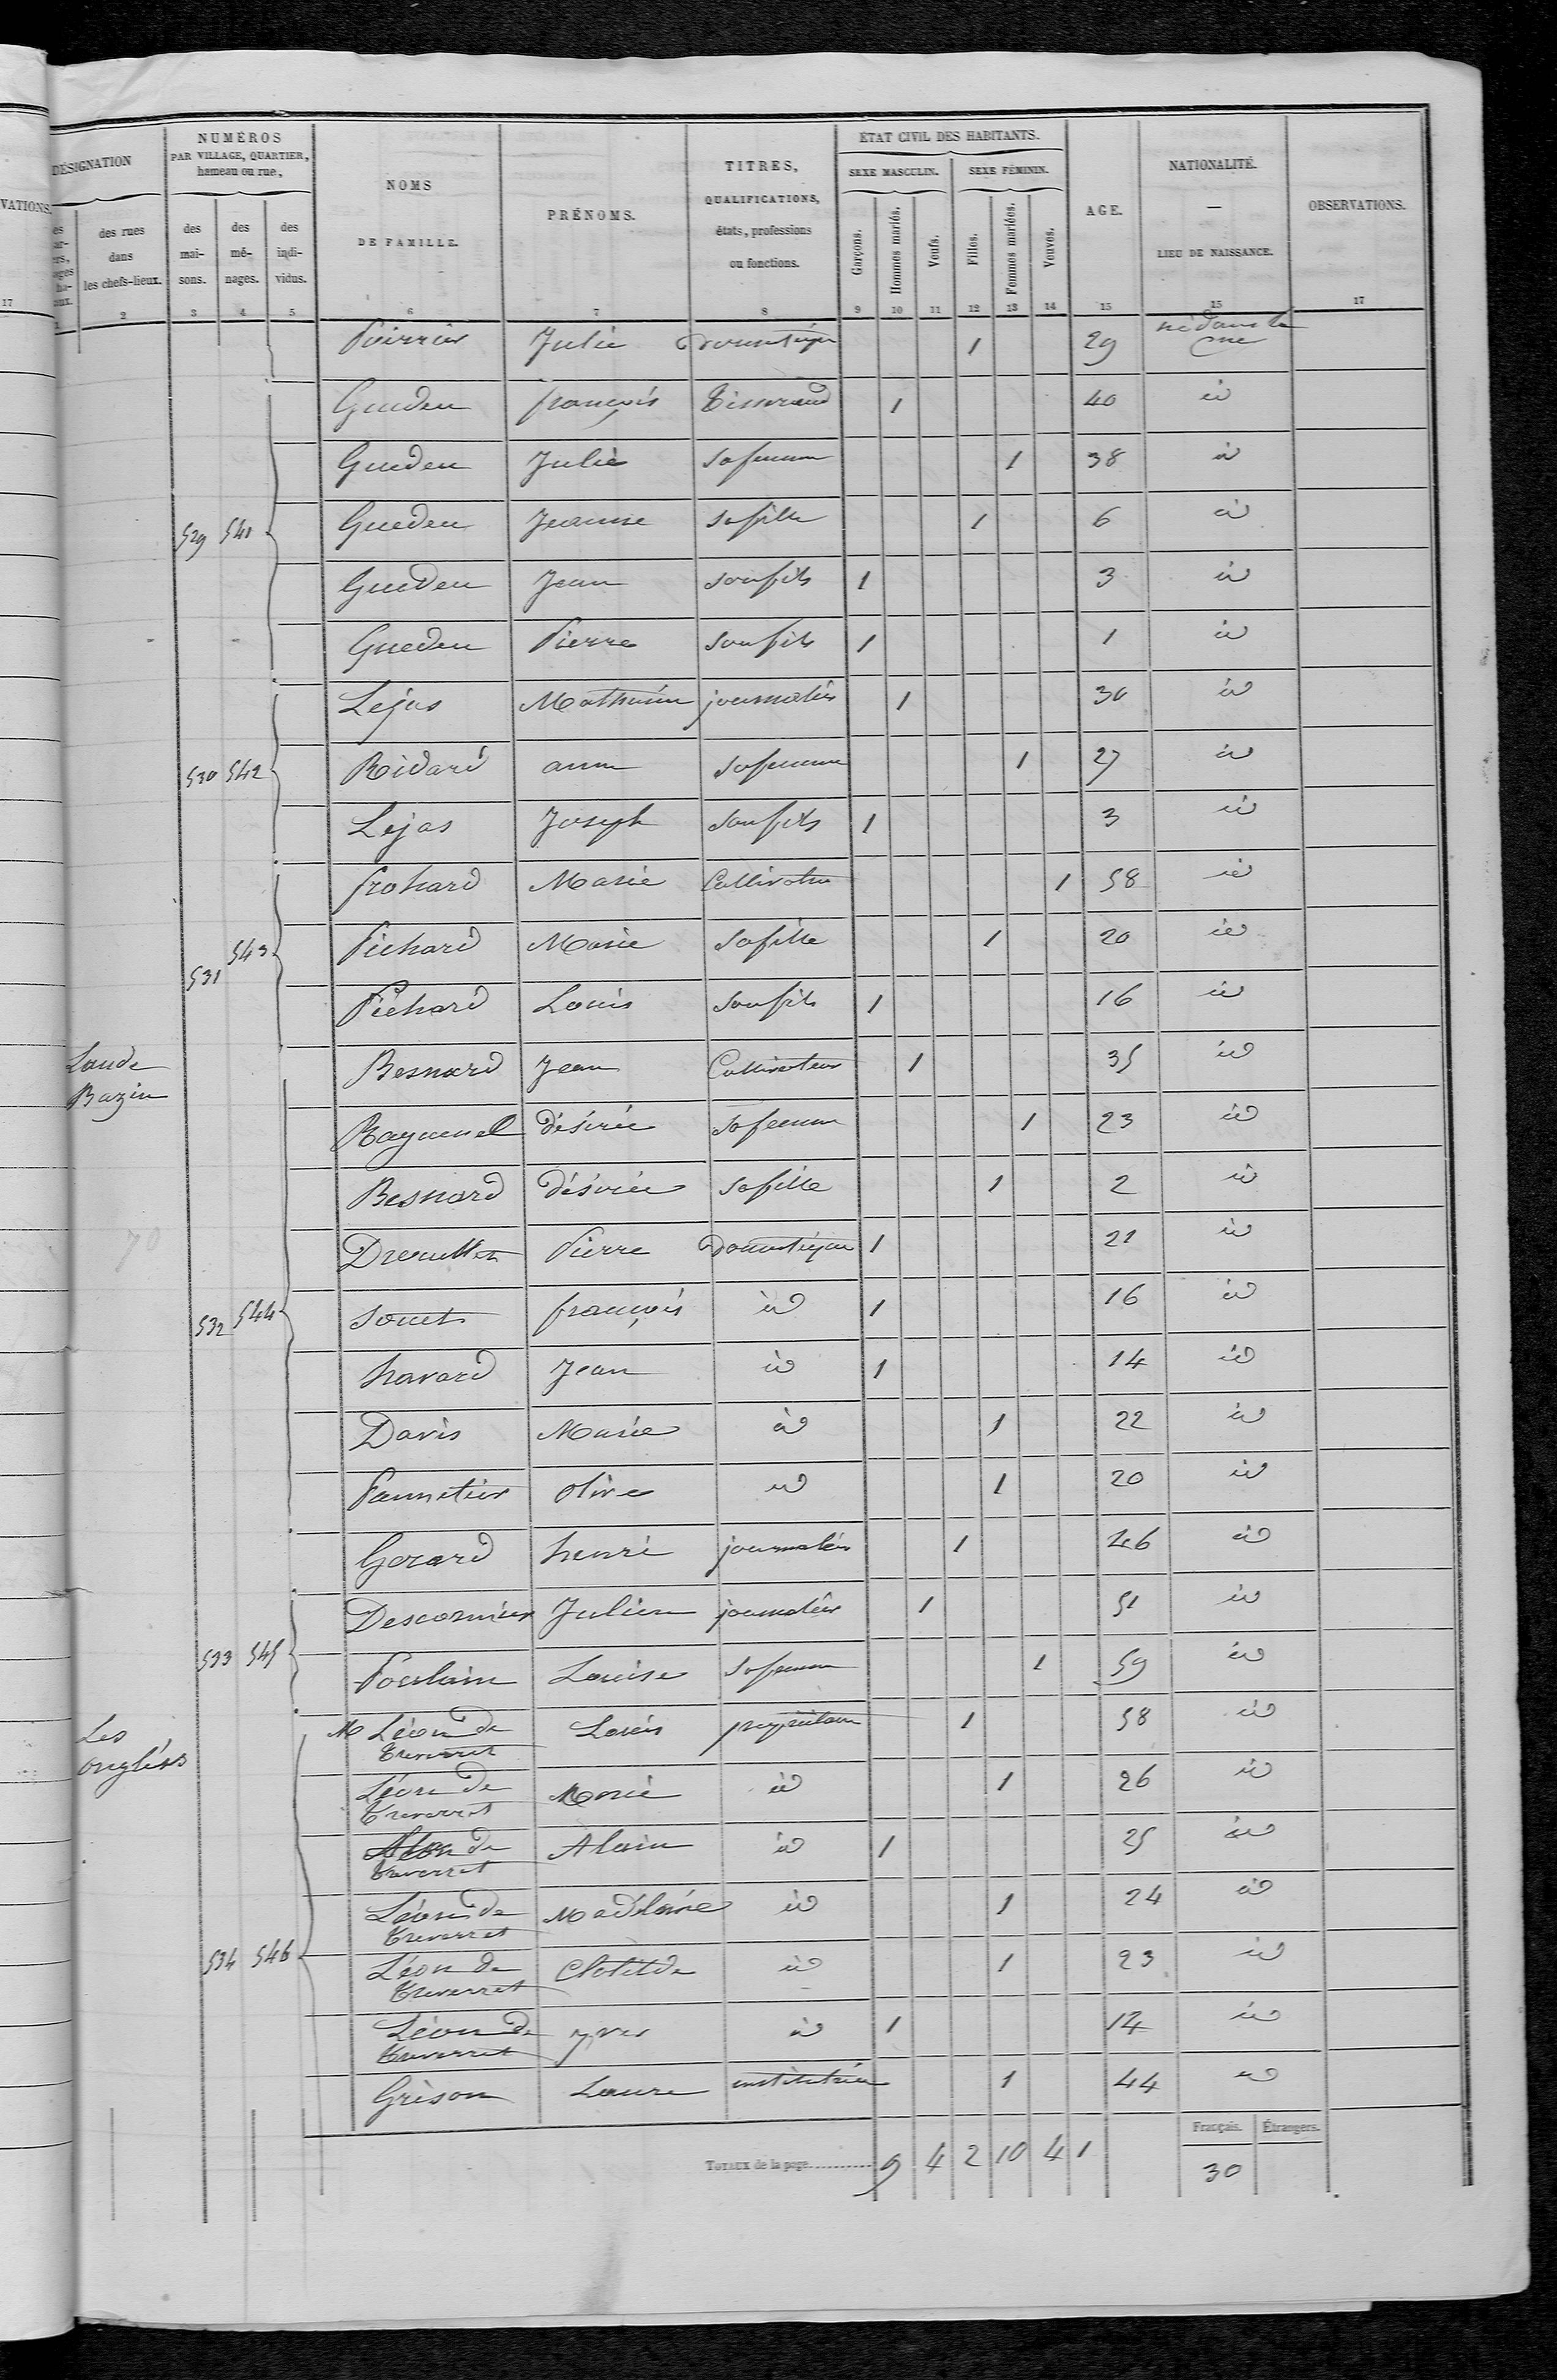 DÉSIGNATION
NUMÉROS
PAR VILLAGE, QUARTIER,
hameau ou rue,
NOMS
DE FAMILLE.
PRÉNOMS.
TITRES,
QUALIFICATIONS,
états, professions
ou fonctions.
ÉTAT CIVIL DES HABITANTS.
SEXE MASCULIN.
SEXE FÉMININ.
AGE.
NATIONALITÉ.
—
LIEU DE NAISSANCE.
OBSERVATIONS.
VATIONS.
des rues
dans
les chefs-lieux.
des
mai-
sons.
des
mé-
nages.
des
indi-
vidus.
Garçons.
Hommes mariés.
Veufs.
Filles.
Femmes mariées.
Veuves.
17 2 3 4 5 6 7 8 9 10 11 12 13 14 15 15 17
Poirrier Julie domestique 1 29 né dans la cne
Gueden françois Tisserand 1 40 id
Gueden Julie sa femme 1 38 id
529 541 Gueden Jeanne sa fille 1 6 id
Gueden Jean son fils 1 3 id
Gueden Pierre son fils 1 1 id
Lejas Mathurin journalier 1 30 id
530 542 Ridard anne sa femme 1 27 id
Lejas Joseph son fils 1 3 id
frohard Marie Cultivatrice 1 58 id
531 543 Pichard Marie sa fille 1 20 id
Pichard Louis son fils 1 16 id
Lande
Bazin
Besnard Jean Cultivateur 1 35 id
Raguenel désirée sa femme 1 23 id
Besnard désirée sa fille 1 2 id
70
Dreullet Pierre domestique 1 21 id
532 544 Souet françois id 1 16 id
havard Jean id 1 14 id
Davis Marie id 1 22 id
Pannetier olive id 1 20 id
Gorard henri journalier 1 46 id
Descormier Julien journalier 1 51 id
533 545 Poulain Louise sa femme 1 59 id
Les
onglées
M Léon de Treverret Louis propriétaire 1 58 id
Léon de Treverret Marie id 1 26 id
Léon de Treverret Alain id 1 25 id
Léon de Treverret Madelaine id 1 24 id
534 546 Léon de Treverret Clotilde id 1 23 id
Léon de Treverret yves id 1 14 id
Grison Laure institutrice 1 44 id
Français. Étrangers.
TOTAUX de la page 9 4 2 10 4 1 30